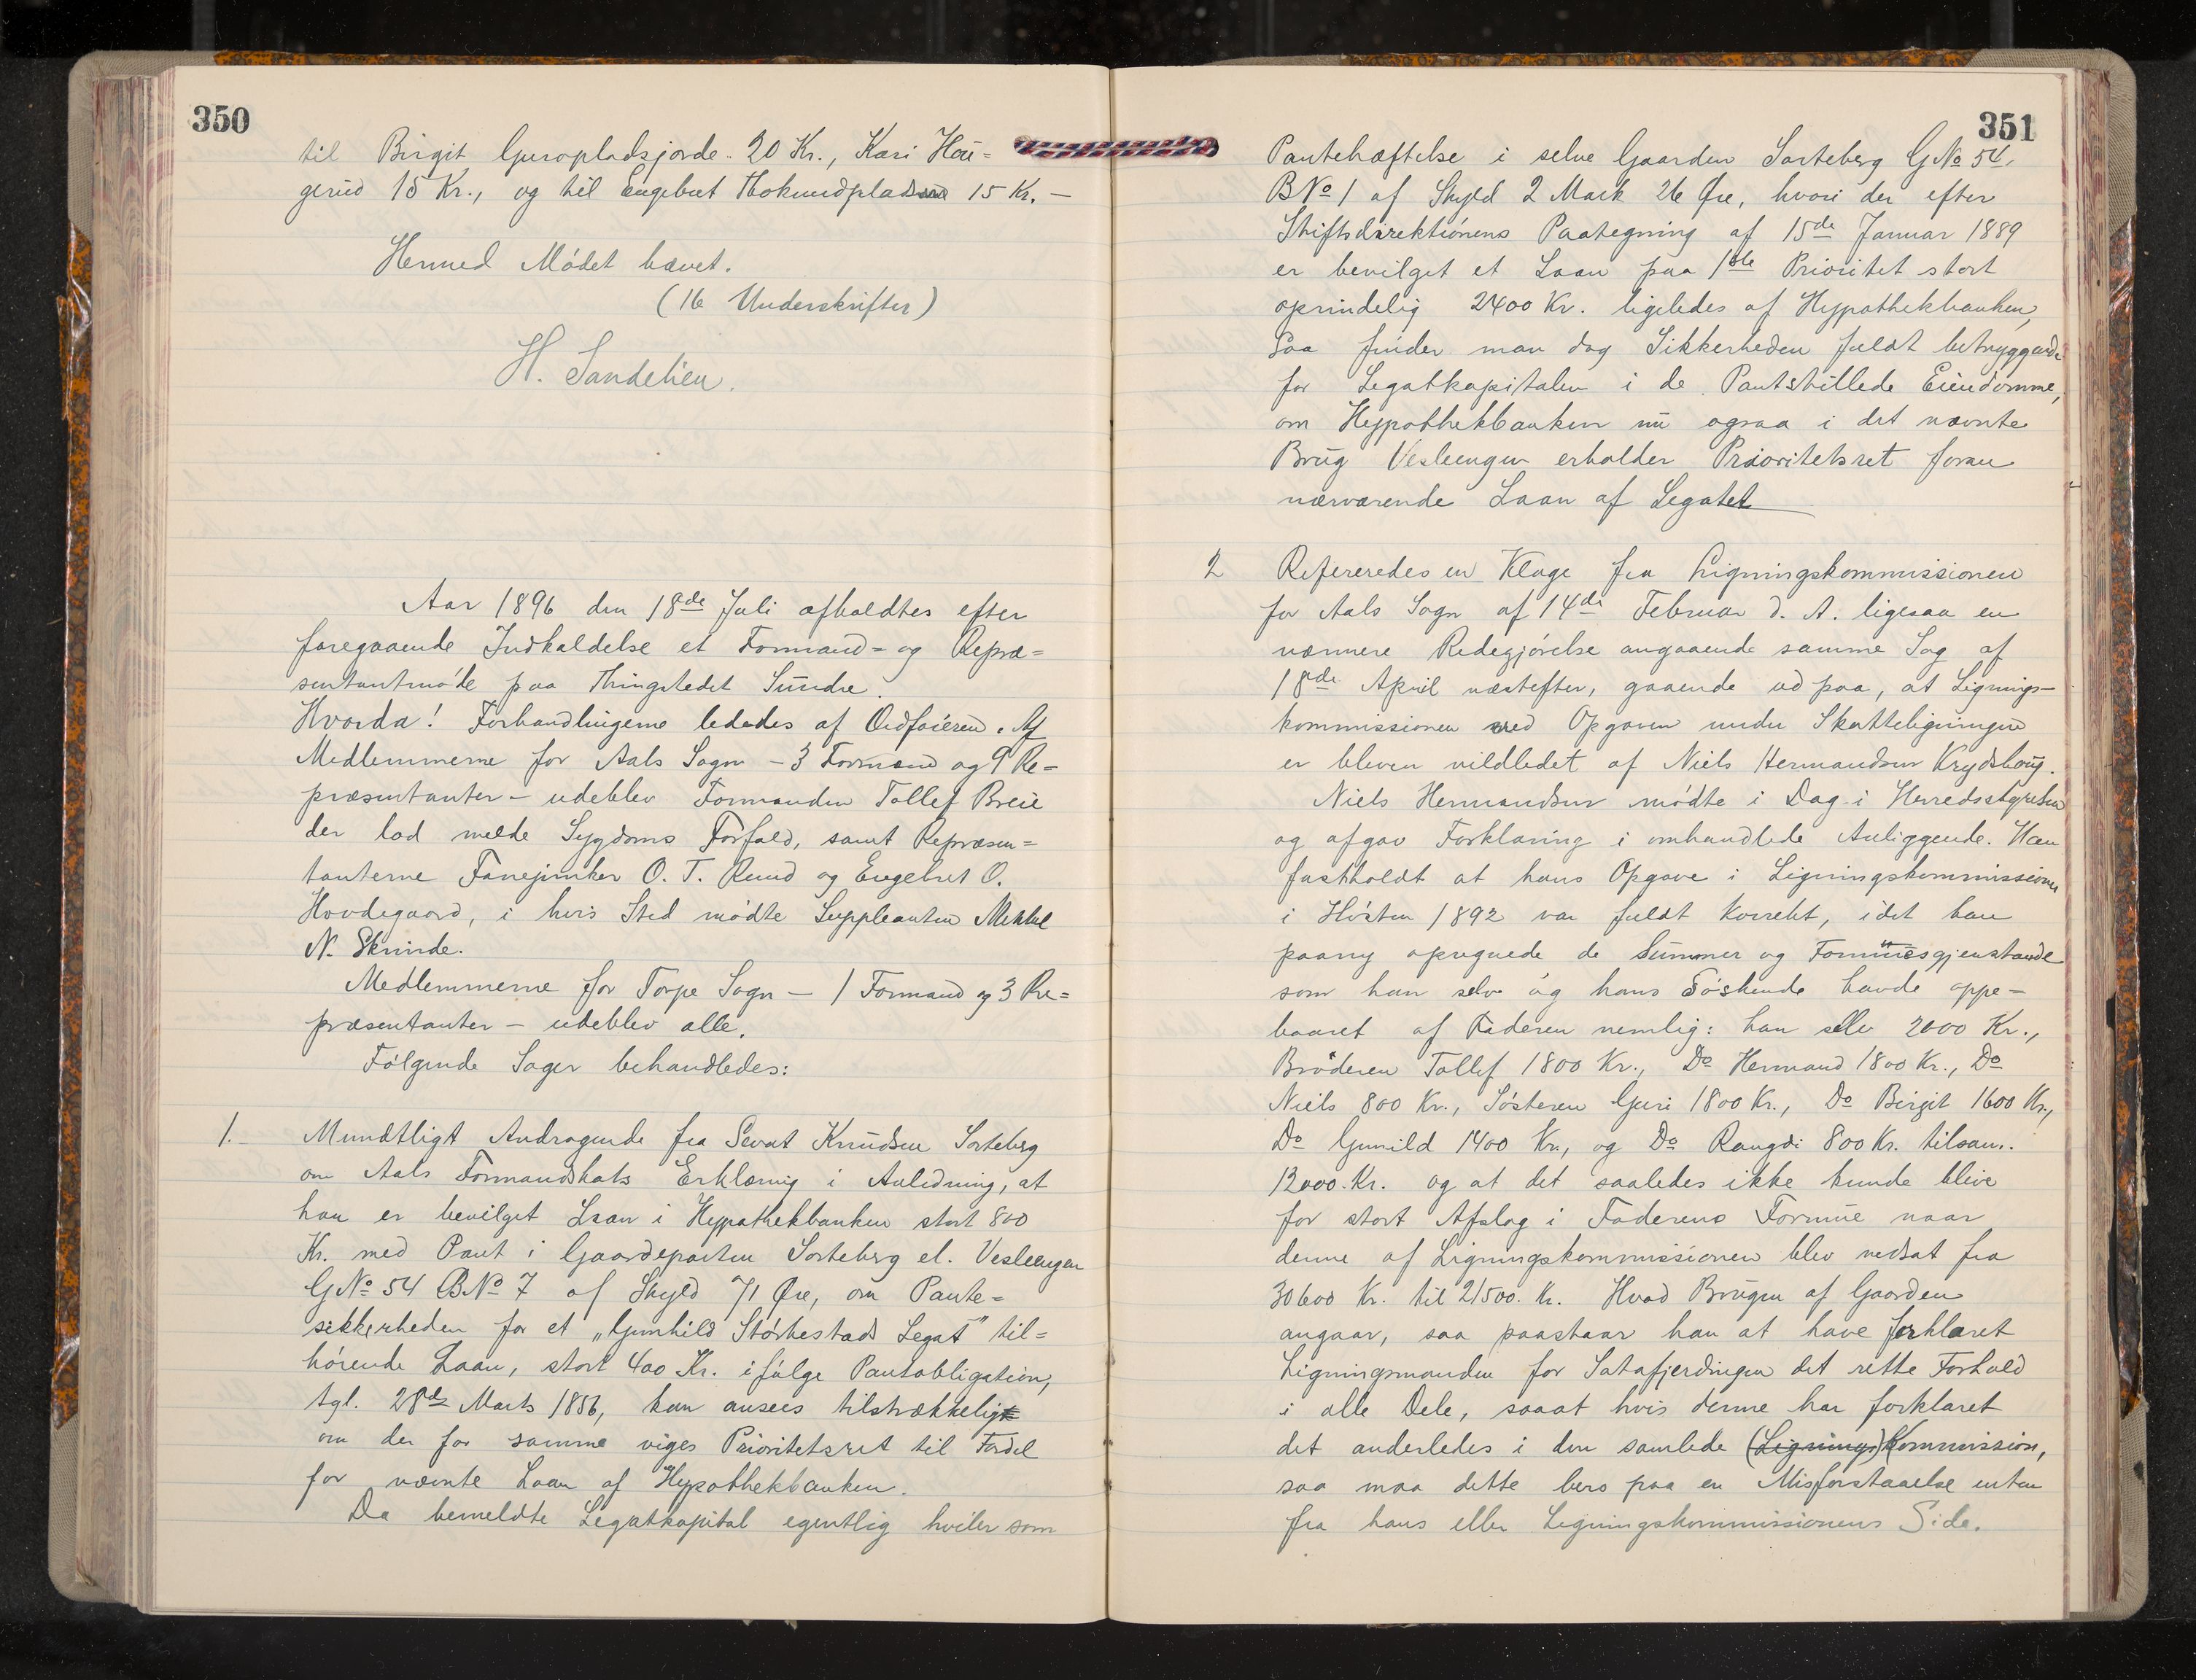 350
til Birgit Guropladsjorde. 20 Kr., Kari Hau=
gerud 15 Kr., og til Engebret 15 Kr. —
Hermed Mødet hævet.
(16 Underskrifter)
H. Sandelien.
Aar 1896 den 18de Juli afholdtes efter
foregaaende Indkaldelse et Formand- og Repræ=
sentantmøde paa Thingstedet Sundre.
Hvorda! Forhandlingerne lededes af Ordføreren. Af
Medlemmerne for Aals Sogn – 3 Formænd og 9 Re=
præsentanter – udeblev Formanden Tollef Breie
der lod melde Sygdoms Forfald, samt Repræsen=
tanterne Fanejunker O. T. Ruud og Engebret O.
Hovdegaard, i hvis Sted mødte Suppleanten Mekkel
N. Skrinde.
Medlemmerne for Torpe Sogn – 1 Formand og 3 Re=
præsentanter – udeblev alle.
Følgende Sager behandledes:
1. Mundtligt Andragende fra Sevat Knudsen Sorteberg
om Aals Formandskabs Erklæring i Anledning, at
han er bevilget Laan i Hypothekbanken stort 800
Kr. med Pant i Gaardeparten Sorteberg el. Vesleengen
GNo 54 BNo 7 af Skyld 71 Øre, om Pante=
sikkerheden for et „Gunhild Størhestads Legat" til=
hørende Laan, stort 400 Kr. ifølge Pantobligation,
tgl. 28de Marts 1856, kan ansees tilstrækkelig
om der for samme viges Prioritetsret til Fordel
for nævnte Laan af Hypothekbanken.
Da bemeldte Legatkapital egentlig hviler som
351
Pantehæftelse i selve Gaarden Sorteberg GNo 54,
BNo 1 af Skyld 2 Mark 26 Øre, hvori der efter
Stiftsdirektionens Paategning af 15de Januar 1889
er bevilget et Laan paa 1ste Prioritet stort
oprindelig 2400 Kr. ligeledes af Hypothekbanken,
saa finder man dog Sikkerheden fuldt betryggende
for Legatkapitalen i de Pantstillede Eiendomme,
om Hypothekbanken nu ogsaa i det nævnte
Brug Vesleengen erholder Prioritetsret foran
nærværende Laan af Legatet
2 Refereredes en Klage fra Ligningskommissionen
for Aals Sogn af 14de Februar d. A. ligesaa en
nærmere Redegjørelse angaaende samme Sag af
18de April næstefter, gaaende ud paa, at Lignings-
kommissionen ved Opgaven under Skatteligningen
er bleven vildledet af Niels Hermandsen Krydshoug.
Niels Hermandsen mødte i Dag i Herredsstyrelsen
og afgav Forklaring i omhandlede Anliggende. Han
fastholdt at hans Opgave i Ligningskommissionen
i Høsten 1892 var fuldt korrekt, idet han
paany opregnede de Summer og Formuesgjenstande
som han selv og hans Søskende havde oppe-
baaret af Faderen nemlig: han selv 2000 Kr.,
Broderen Tollef 1800 Kr., Do Hermand 1800 Kr., Do
Niels 800 Kr., Søsteren Guri 1800 Kr., Do Birgit 1600 Kr.,
Do Gunild 1400 Kr., og Do Rangdi 800 Kr. tilsam.
12000 Kr. og at det saaledes ikke kunde blive
for stort Afslag i Faderens Formue naar
denne af Ligningskommissionen blev nedsat fra
30600 Kr. til 21500 Kr. Hvad Brugen af Gaarden
angaar, saa paastaar han at have forklaret
Ligningsmanden for Satafjerdingen det rette Forhold
i alle Dele, saaat hvis denne har forklaret
det anderledes i den samlede (Lignings)Kommission,
saa maa dette bero paa en Misforstaaelse enten
fra hans eller Ligningskommissionens Side.